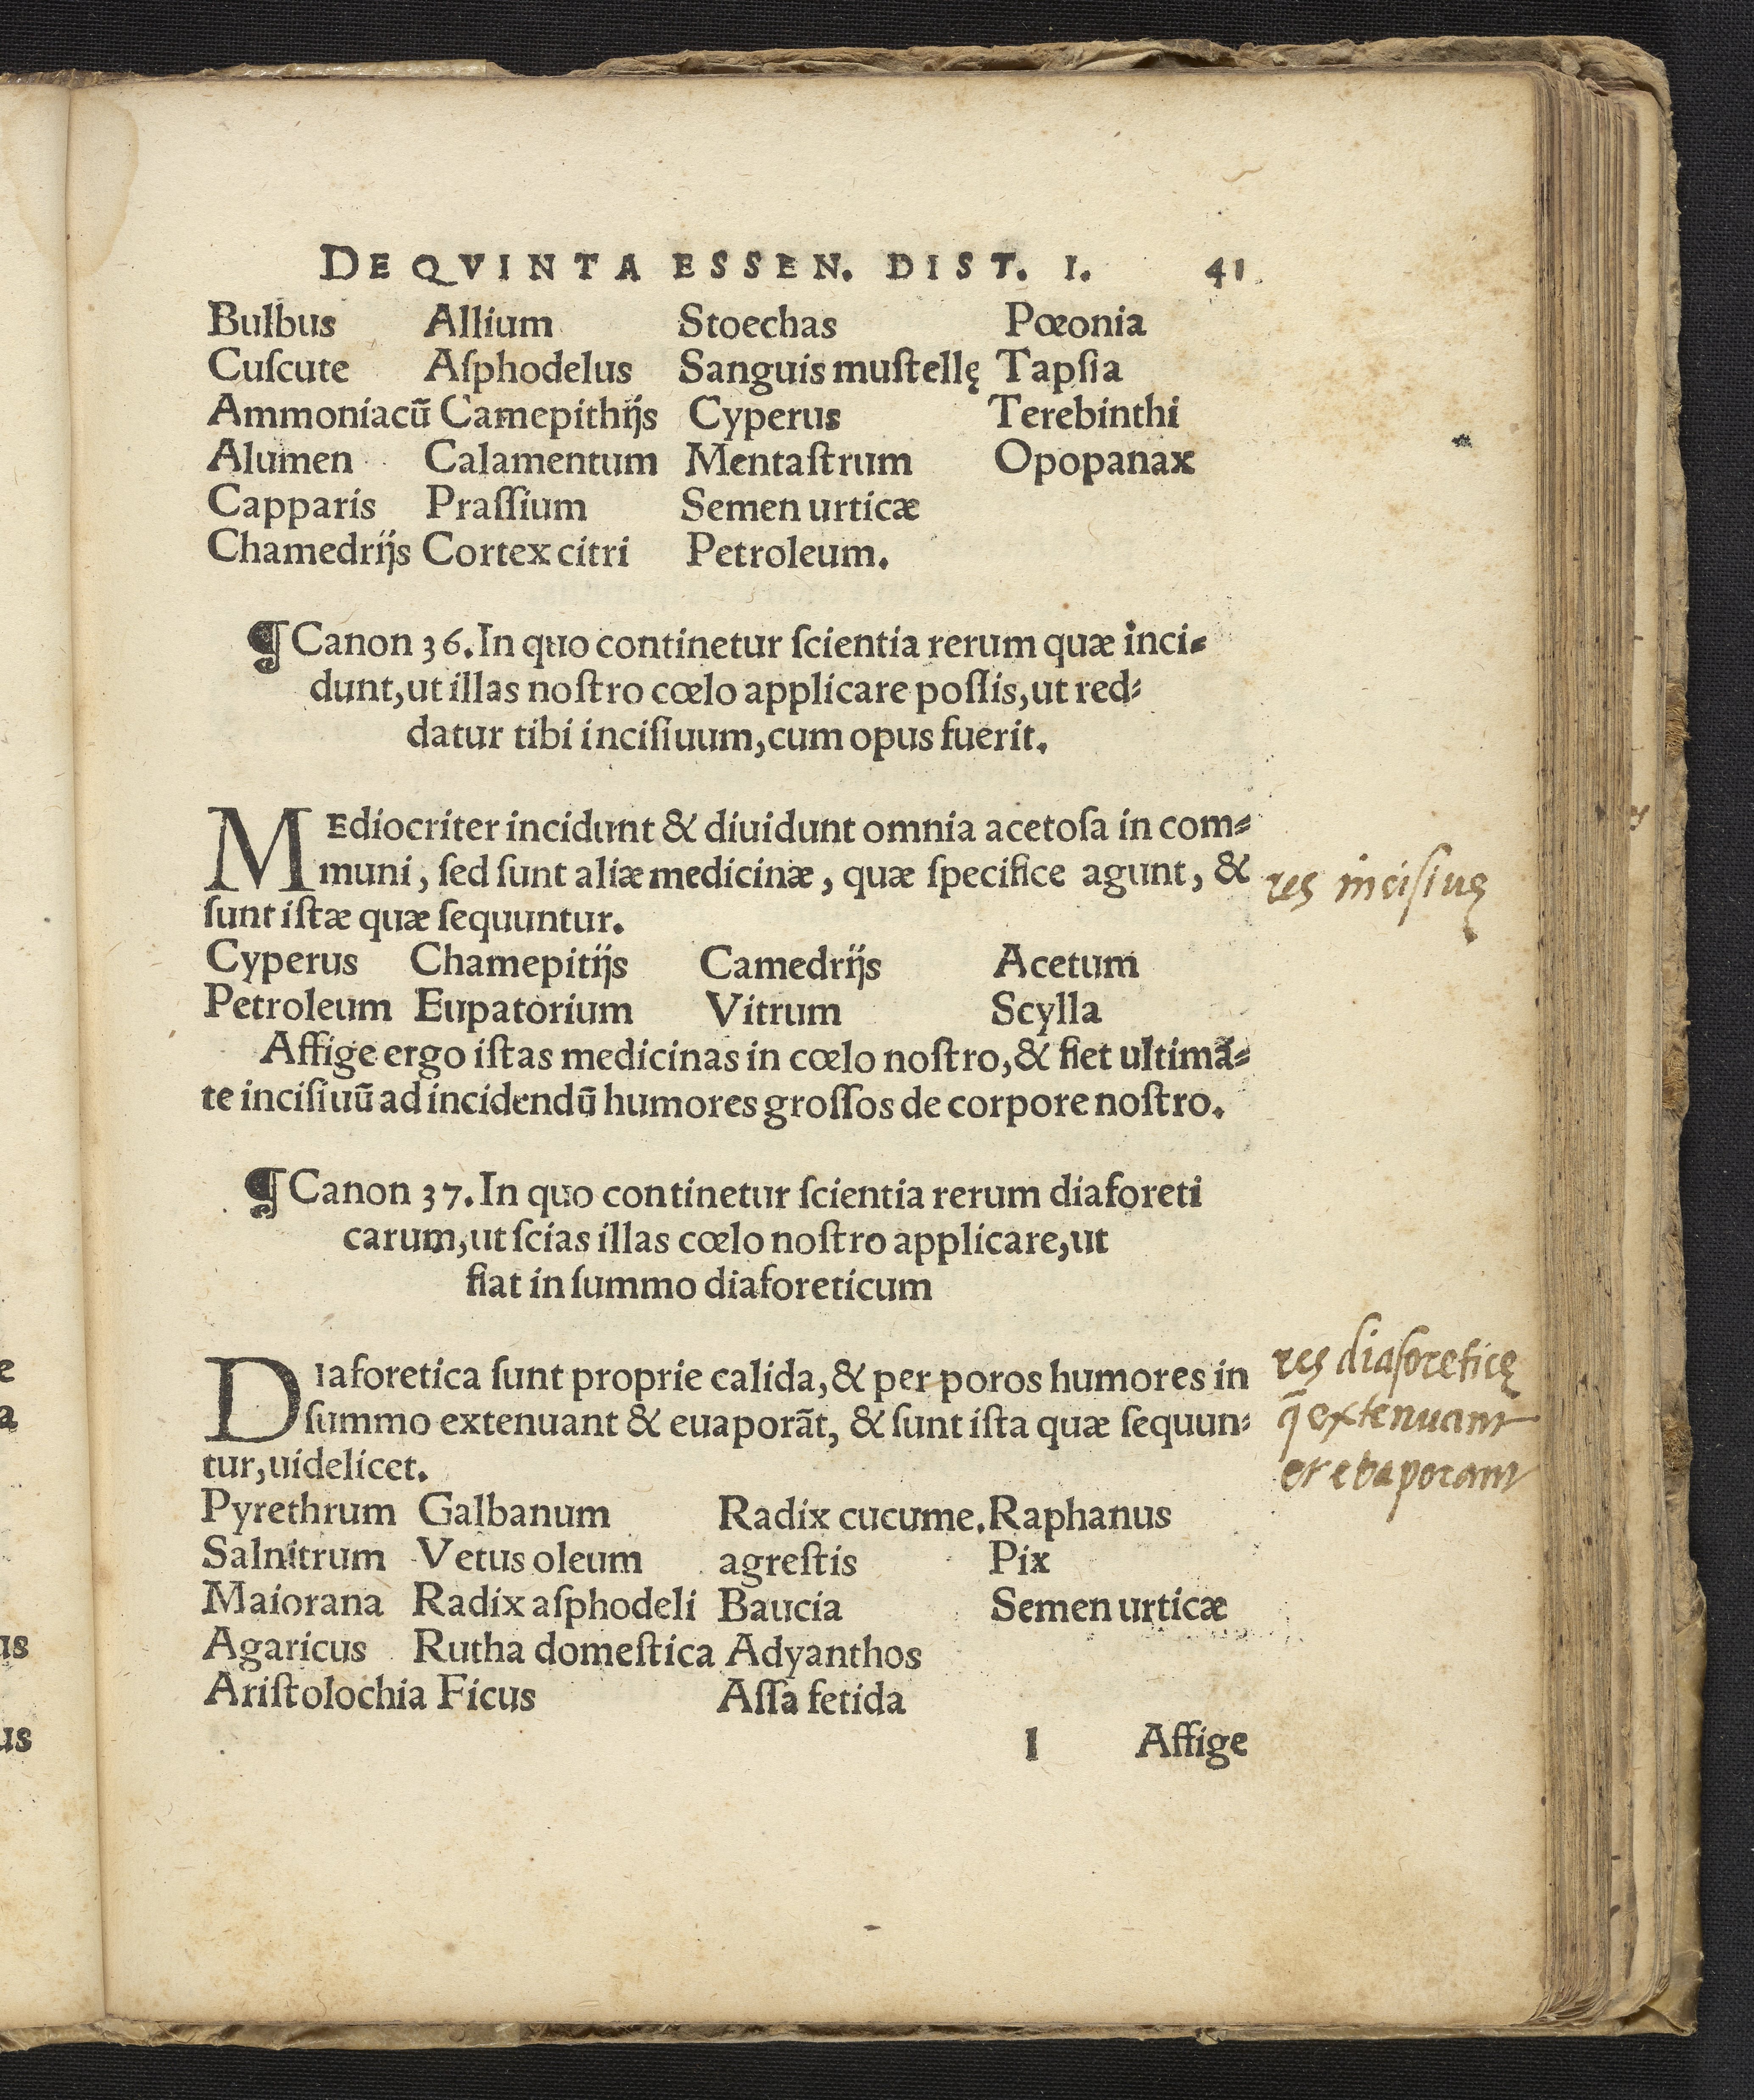 DE QVINTA ESSEN. DIST. I. 41
Bulbus Allium Stoechas Pœonia
Cuſcute Aſphodelus Sanguis muſtellę Tapſia
Ammoniacū Camepithijs Cyperus Terebinthi
Alumen Calamentum Mentaſtrum Opopanax
Capparis Praſſium Semen urticæ
Chamedrijs Cortex citri Petroleum.
¶ Canon 36. In quo continetur ſcientia rerum quæ inci-
dunt, ut illas noſtro cœlo applicare poſſis, ut red-
datur tibi inciſiuum, cum opus fuerit.
MEdiocriter incidunt & diuidunt omnia acetoſa in com-
muni, ſed ſunt aliæ medicinæ, quæ ſpecifice agunt, &
ſunt iſtæ quæ ſequuntur.
res inciſiuę
Cyperus Chamepitijs Camedrijs Acetum
Petroleum Eupatorium Vitrum Scylla
Affige ergo iſtas medicinas in cœlo noſtro, & fiet ultimā-
te inciſiuū ad incidendū humores groſſos de corpore noſtro.
¶ Canon 37. In quo continetur ſcientia rerum diaforeti
carum, ut ſcias illas cœlo noſtro applicare, ut
fiat in ſummo diaforeticum
DIaforetica ſunt proprie calida, & per poros humores in
ſummo extenuant & euaporāt, & ſunt iſta quæ ſequun-
tur, uidelicet.
res diaforeticę
q̄ extenuant
et evaporant
Pyrethrum Galbanum Radix cucume. Raphanus
Salnitrum Vetus oleum agreſtis Pix
Maiorana Radix aſphodeli Baucia Semen urticæ
Agaricus Rutha domeſtica Adyanthos
Ariſtolochia Ficus Aſſa fetida
I Affige
e
a
us
us